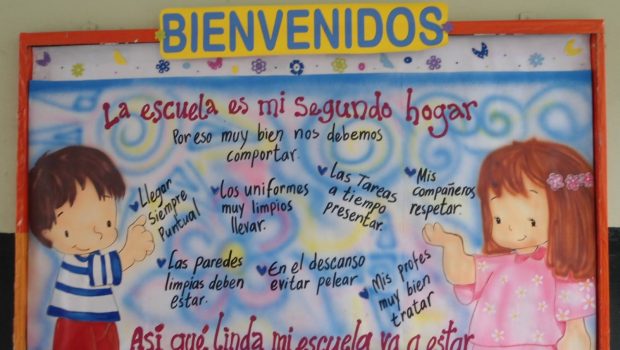 BIENVENIDOS
La escuela es mi segundo hogar
Por eso muy bien nos debemos
comportar.
Llegar
siempre
Puntual
Los uniformes
muy limpios
llevar.
Las Tareas
a tiempo
presentar.
Mis
compañeros
respetar.
Las paredes
limpias deben
estar.
En el descanso
evitar pelear
Mis profes
muy bien
tratar
Así qué linda mi escuela va a estar